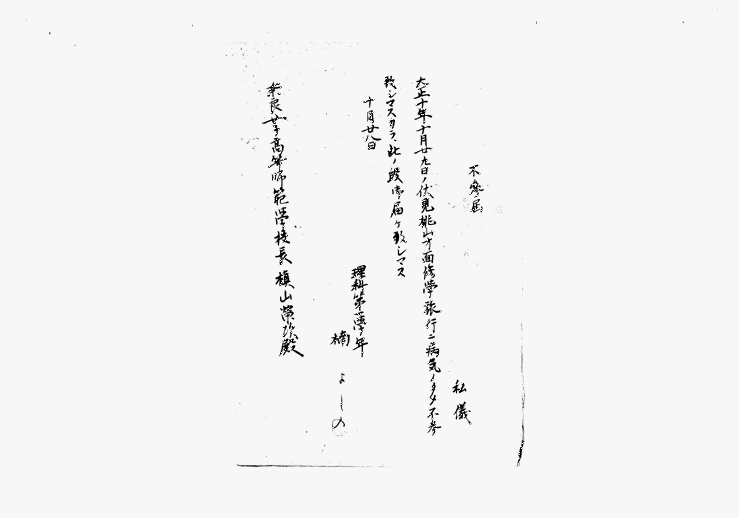 不參届
私儀
大正十年十月廿九日ノ伏見桃山方面修學旅行ニ病気ノタメ不参
致シマスカラ此ノ段御届ケ致シマス
十月廿八日
理科第一學年
楠よしの
奈良女子高等師範學校長槇山榮次殿